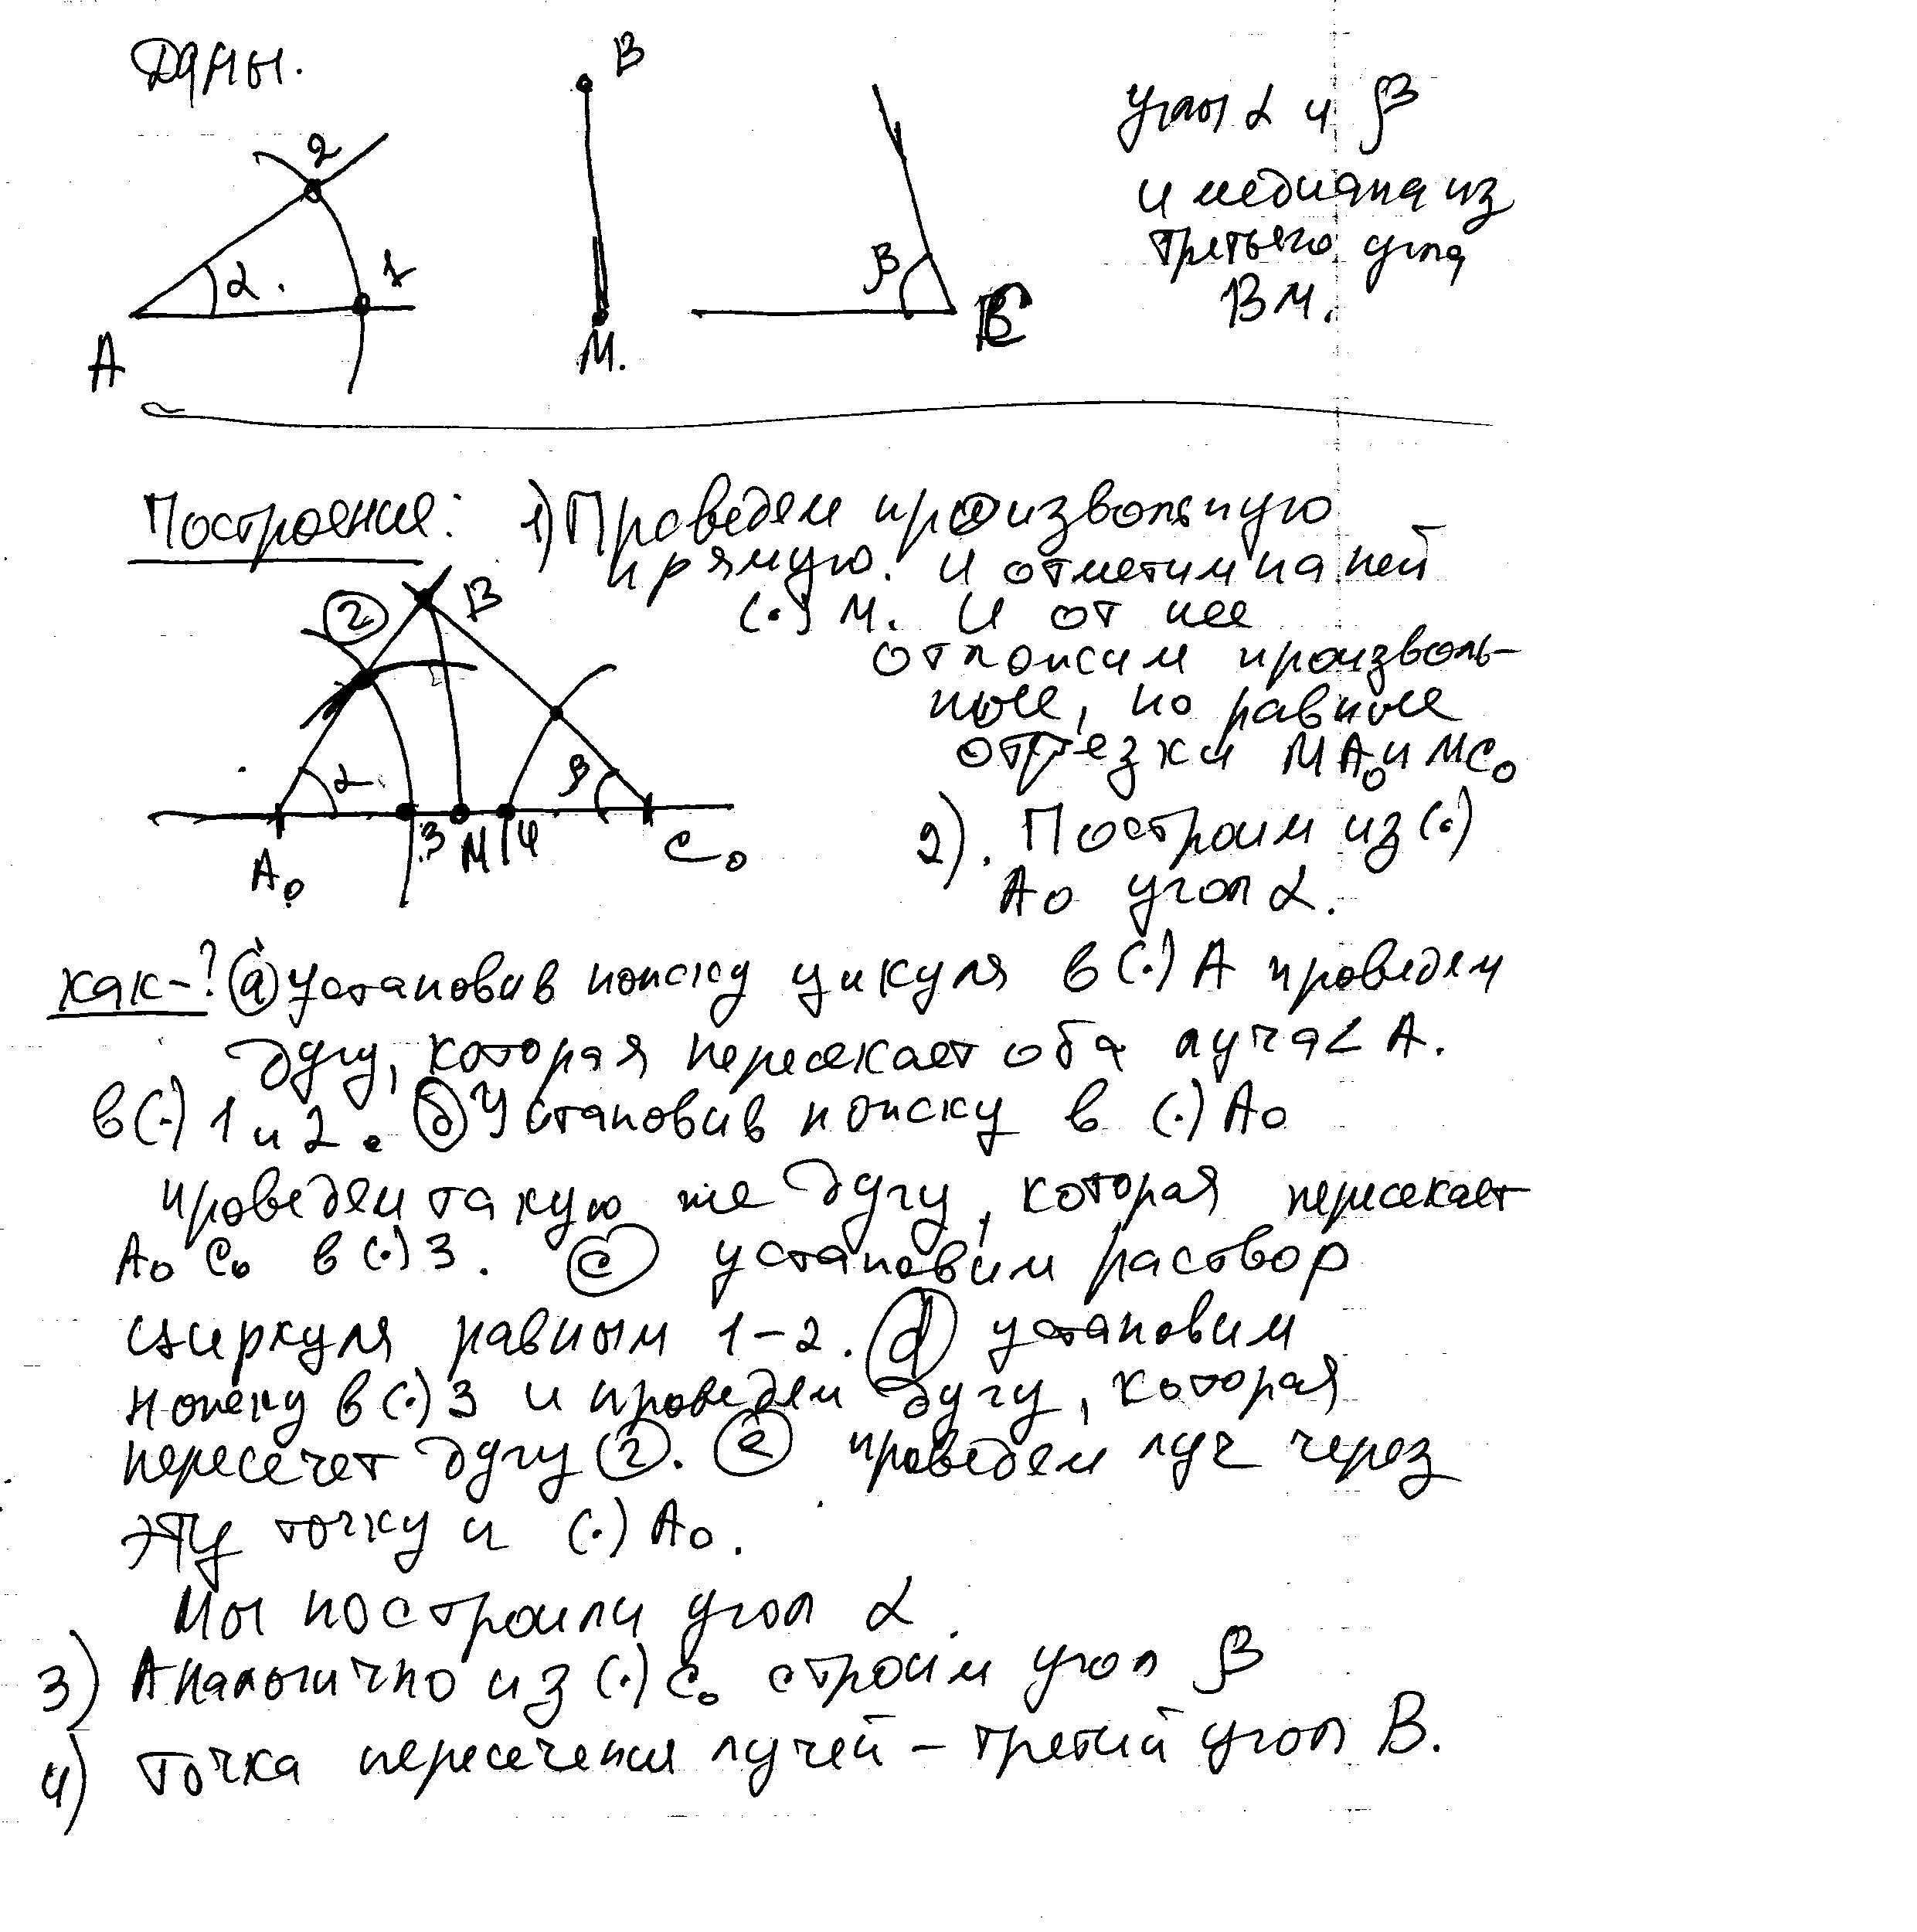 Даны.
B
углы α и β
и медиана из
третьего угла
BM.
2
α
1
A
M.
β
C
Построение: 1) Проведем произвольную
прямую. и отметим на ней
(·) M. И от нее
отложим произволь-
ные, но равные
отрезки MA₀ и MC₀
2
B
α
β
3
M
4
A₀
C₀
2). Построим из (·)
A₀ угол α.
как-? а) установив ножку цикуля в (·) A проведем
дугу, которая пересекает оба луча < A.
в (·) 1 и 2. б) Установив ножку в (·) A₀
проведем такую же дугу, которая пересекает
A₀ C₀ в (·) 3. c) установим раствор
циркуля равным 1-2. d) установим
ножку в (·) 3 и проведем дугу, которая
пересечет дугу 2. e) проведем луч через
эту точку и (·) A₀.
Мы построили угол α.
3) Аналогично из (·) C₀ строим угол β
4) точка пересечения лучей - третий угол B.